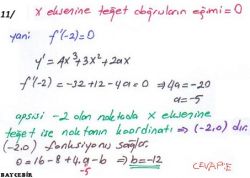 11/ x eksenine teğet doğruların eğimi = 0
yani f'(-2)=0
y' = 4x³+3x²+2ax
f'(-2) = -32+12-4a = 0 ⇒ 4a = -20
a = -5
apsisi -2 olan noktada x eksenine
teğet ise noktanın koordinatı ⇒ (-2,0) dır.
(-2,0) fonksiyonu sağlar.
0 = 16 - 8 + 4a - b ⇒ b = -12
-5
CEVAP:E
BAYÇEBİR